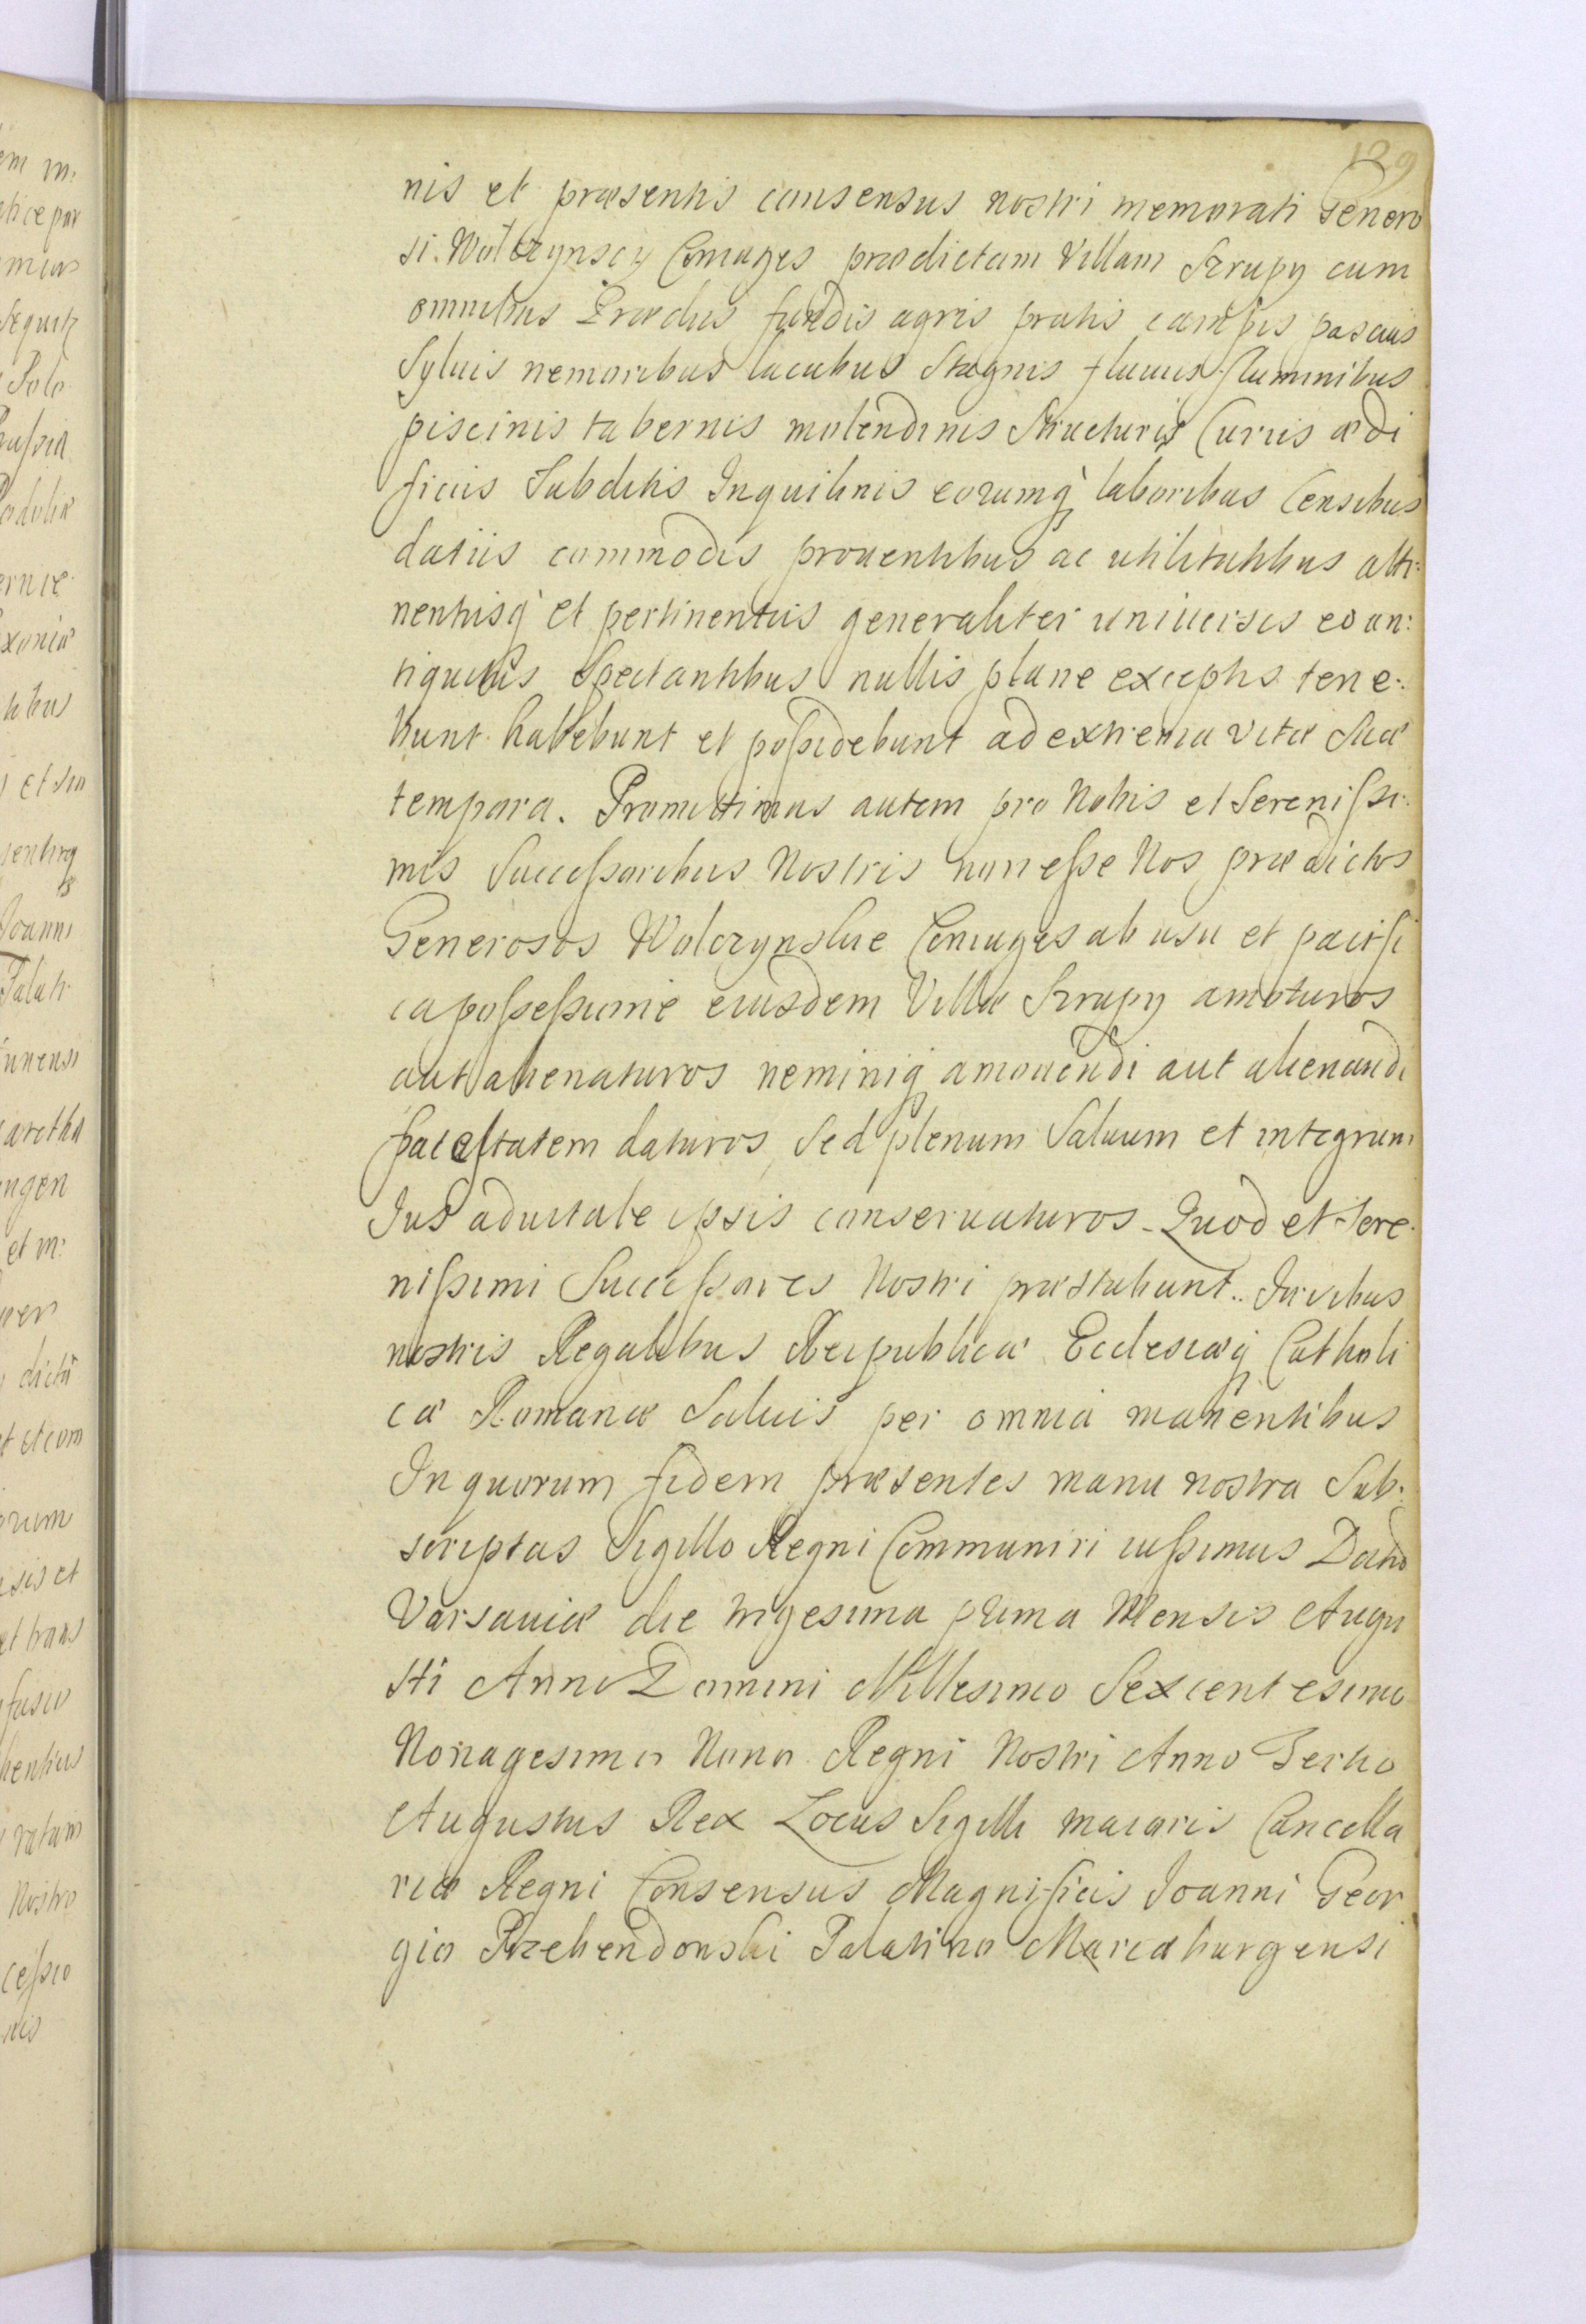 129
nis et præsentis consensus nostri memorati Genero
si Wolczynscy Coniuges prædictam Villam Szrupy cum
omnibus Prædiis fundis agris pratis campis pascuis
Syluis nemoribus lacubus Stagnis fluuiis fluminibus
piscinis tabernis molendinis Structuris Curiis ædi
ficiis Subditis Inquilinis eorumq̀ laboribus Censibus
datiis commodis prouentibus ac utilitatibus atti:
nentiisq̀ et pertinentiis generaliter uniuersis eo an:
tiquitus Spectantibus nullis plane exceptis tene:
bunt habebunt et poſsidebunt ad extrema vitæ Suæ
tempora. Promittimus autem pro Nobis et Sereniſsi:
mis Succeſsoribus Nostris non eſse Nos prædictos
Generosos Wolczynskie Coniuges ab usu et pacifi
ca poſseſsione eiusdem Villæ Szrupy amoturos
aut alienaturos neminiq̀ amouendi aut alienandi
facultatem daturos, Sed plenum Saluum et integrum
Jus aduitale ipsis conseruaturos. Quod et Sere:
niſsimi Succeſsores Nostri præstabunt. Juribus
nostris Regalibus Reipublicæ Ecclesiæq̀ Catholi
cæ Romanæ Saluis per omnia manentibus
In quorum fidem præsentes manu nostra Sub:
scriptas Sigillo Regni Communiri iuſsimus Datũ
Varsauiæ die trigesima prima Mensis Augu
sti Anno Domini Millesimo Sexcentesimo
Nonagesimo Nono Regni Nostri Anno Tertio
Augustus Rex Locus Sigilli maioris Cancella
riæ Regni Consensus Magnificis Joanni Geor
gio Przebendowski Palatino Mariæburgensi